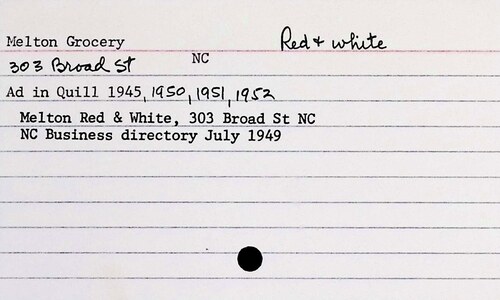 Melton Grocery Red & white
303 Broad St NC
Ad in Quill 1945, 1950, 1951, 1952
Melton Red & White, 303 Broad St NC
NC Business directory July 1949